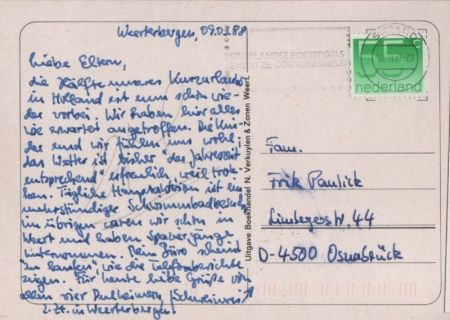 Weerterbergen, 09.03.88
Liebe Eltern,
die Hälfte unseres Kurzurlaubs
in Holland ist nun schon wie-
der vorbei. Wir haben hier alles
wie erwartet angetroffen. Die Kin-
der und wir fühlen uns wohl,
das Wetter ist bisher der Jahreszeit
entsprechend erfreulich, weil trok-
ken. Tägliche Hauptattraktion ist ein
mehrstündiger Schwimmbadbesuch
im übrigen waren wir schon in
Weert und haben Spaziergänge
unternommen. Mein Büro scheint
zu laufen, wie die Telefonberichte
zeigen. Für heute liebe Grüße von
allen vier
z.Zt. in Weerterbergen
Uitgave Boekhandel N. Verkuylen & Zonen Weert.
NEDERLANDSE POSTZEGELS
5
nederland
Fam.
Frik Paulick
44
D-4500 Osnabrück